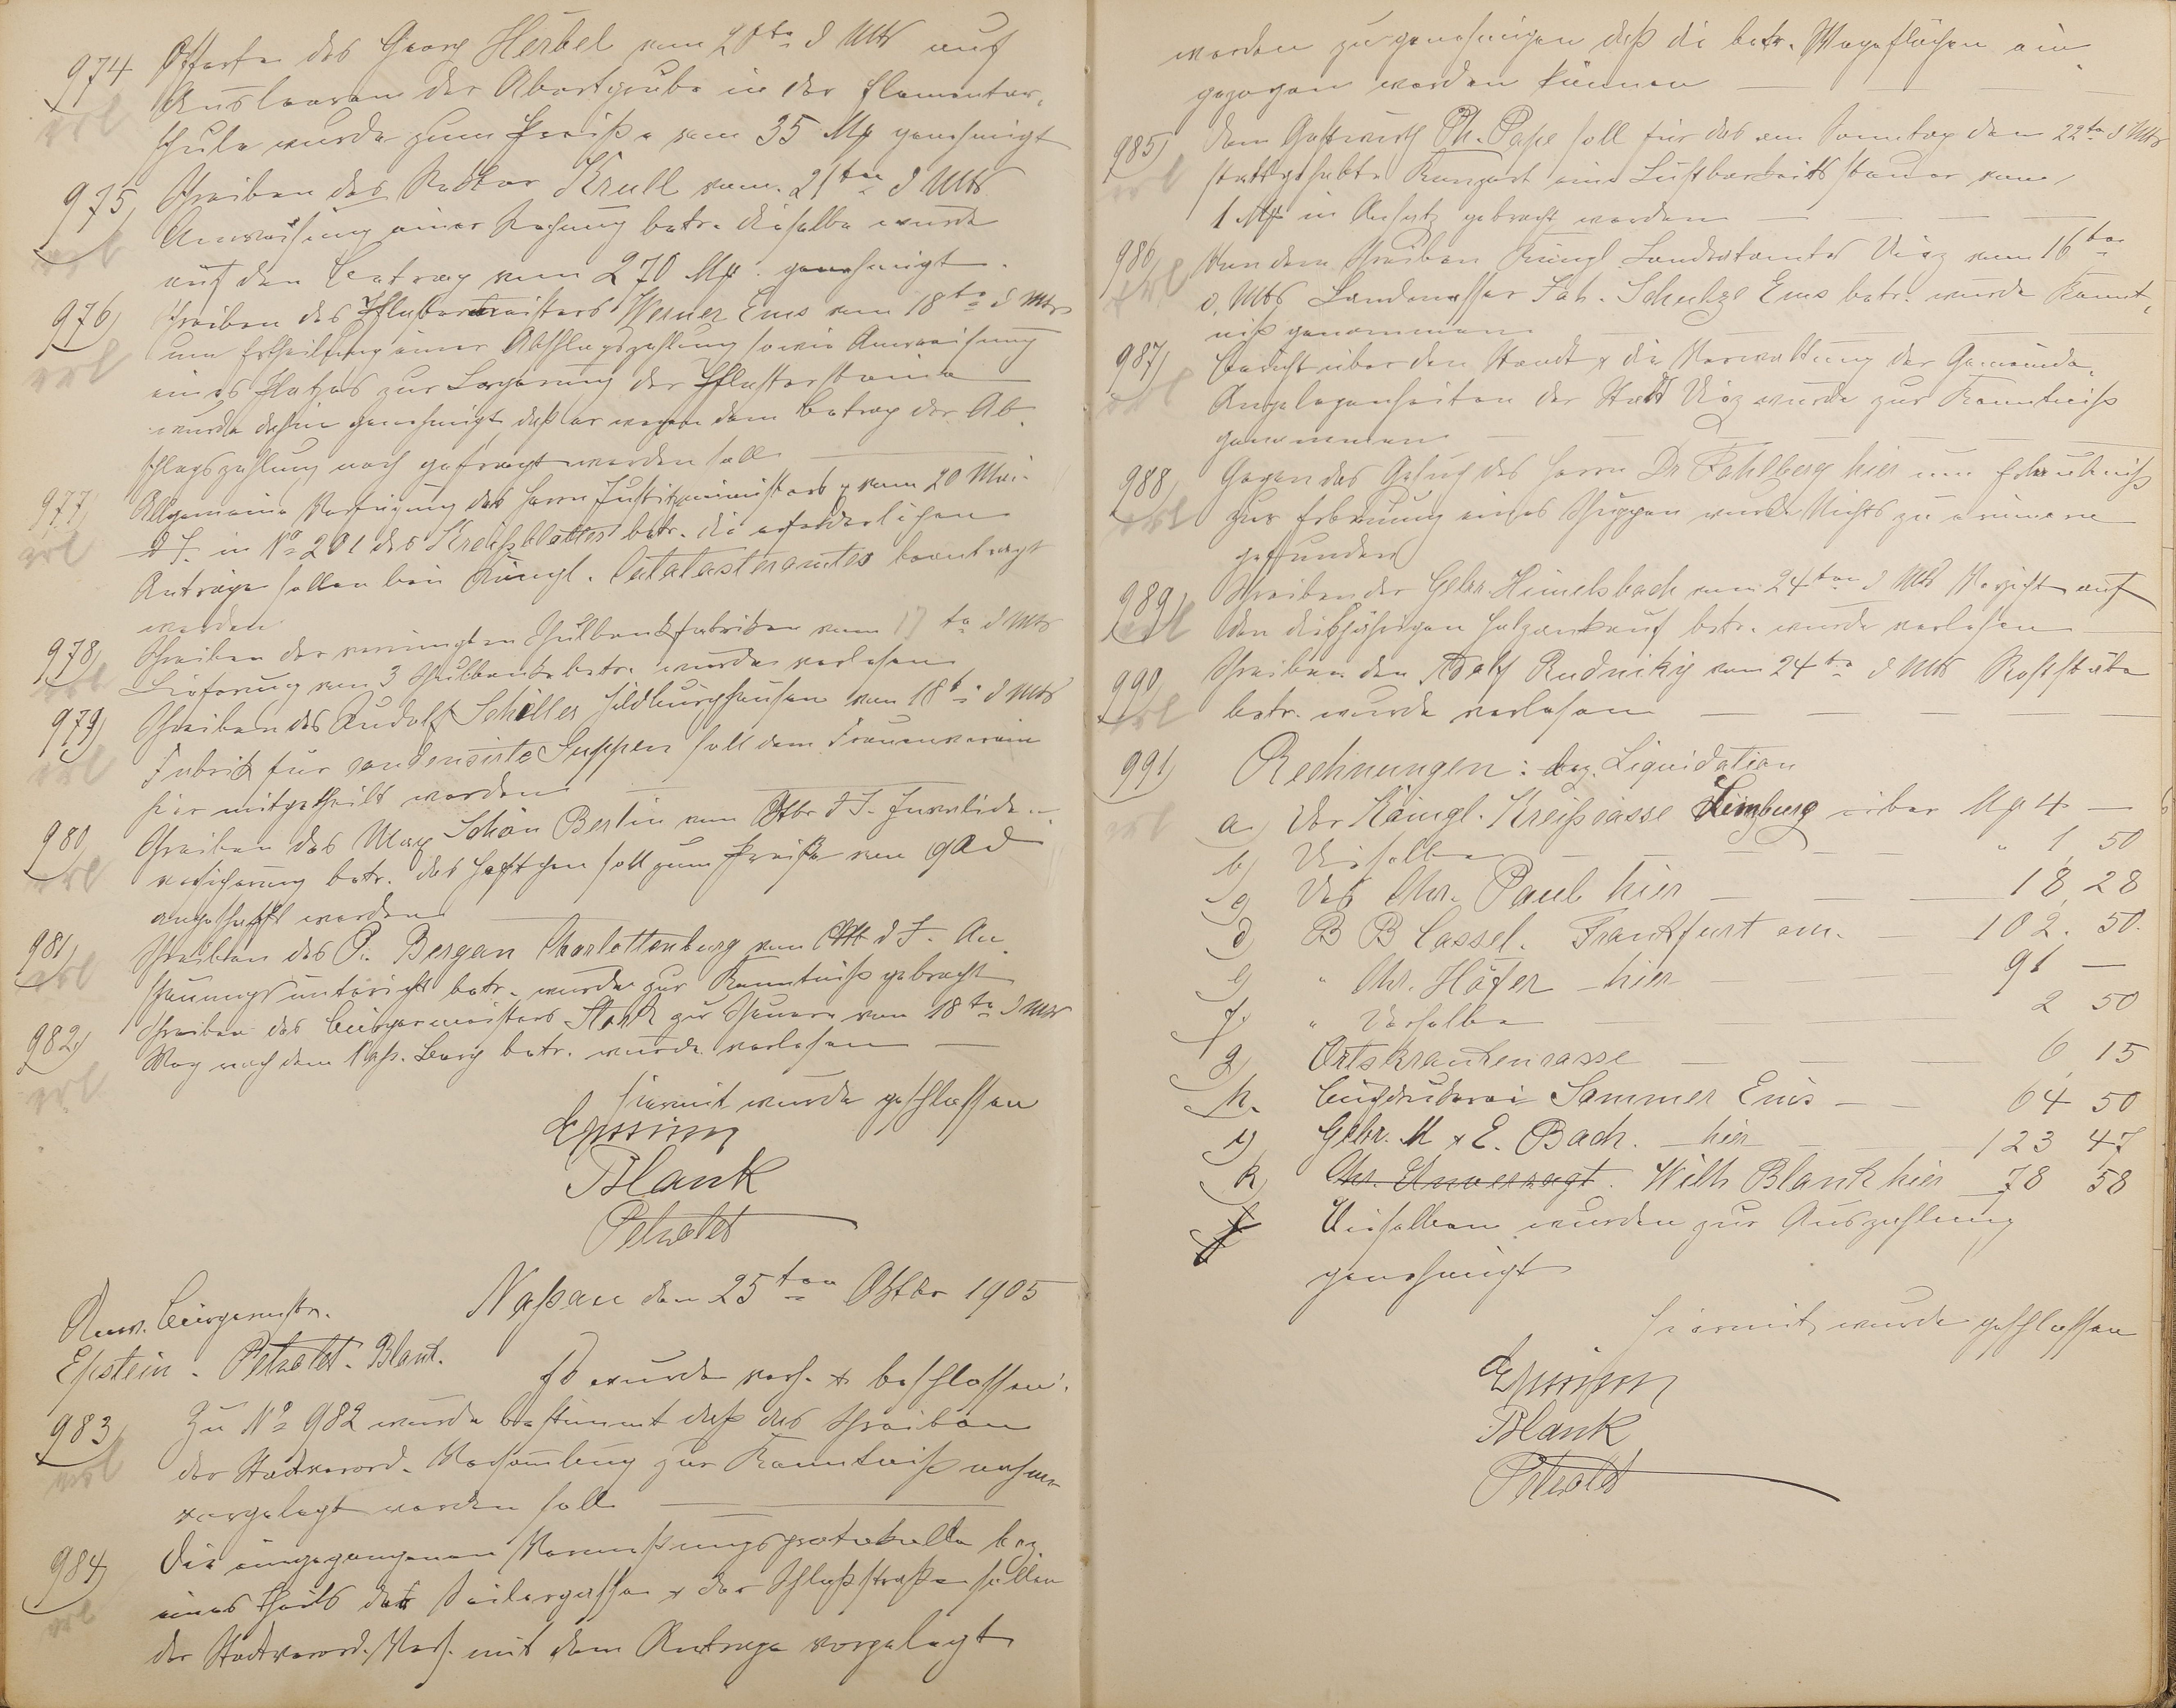 974 Offerte des Georg Herbel vom 20ten d Mts auf
erl Ausleeren der Abortgrube in der Elementar-
schule wurde zum Preiße von 35 Mk genehmigt
975 Schreiben des Rektor Krull vom 21ten d Mts
erl Anweisung einer Rechnung betr. dieselbe wurde
auf den Betrag von 270 Mk. genehmigt.
976) Schreiben des Pflastermeisters Werner Ems vom 18ten d Mts
erl um Ertheilung einer Abschlagszahlung sowie Anweisung
eines Platzes zur Lagerung der Pflastersteine
wurde dahin genehmigt, daß er wegen dem Betrag der Ab-
schlagszahlung noch gefragt werden soll
977) Allgemeine Verfügung des Herrn Justizministers vom 20 Mai
erl d J. in No 201 des Kreisblattes betr. die erforderlichen
Anträge sollen bei Königl. Catatasteramtes beantragt
werden
978) Schreiben der vereinigten Schulbankfabriken vom 17ten d Mts
erl Lieferung von 3 Schulbänke betr. wurde verlesen
979) Schreiben des Rudolf Schiller Hildburghausen vom 18ten d Mts
erl Fabrik für condensirte Suppen soll dem Frauenverein
hier mitgetheilt werden
980) Schreiben des Max Schön Berlin vom Oktbr d J. Invaliden-
erl versicherung betr. das Heftchen soll zum Preiße von 90 d
angeschafft werden
981) Schreiben des P. Bergan Charlottenburg vom Okt d J. An-
erl schauungsunterricht betr. wurde zur Kenntniß gebracht
982) Schreiben des Bürgermeisters zur Scheuern vom 18ten d Mts
erl Weg nach dem Berg betr. wurde verlesen
Hiermit wurde geschlossen
Blank
Petzoldt
Naßau den 25ten Oktbr 1905
Anw. Bürgermstr.
Epstein. Petzoldt. Blank.
Es wurde verh. & beschlossen:
983) Zu No 982 wurde bestimmt daß das Schreiben
erl der Stadtverord. Versammlung zur Kenntniß
vorgelegt werden soll
984) Die eingegangenen Vermeßungsprotokolle bez.
erl eines Theils der Seilergasse & der Schloßstraße sollen
der Stadtverord. Vers. mit dem Antrage vorgelegt
werden zu genehmigen daß die betr. Wegeflächen ein-
gezogen werden können
985) Dem Gastwirth Ph. Pape soll für das am Sonntag den 22ten d Mts
erl stattgehabte Konzert eine Lustbarkeitssteuer von
1 Mk in Ansatz gebracht werden
986) Von dem Schreiben Königl. Landratamtes Diez vom 16ten
erl d. Mts Landmesser Joh. Schultze Ems betr. wurde Kennt-
niß genommen
987) Bericht über den Standt & die Verwaltung der Gemeinde-
erl Angelegenheiten der Stadt Diez wurde zur Kenntniß
genommen
988) Gegen das Gesuch des Herrn Dr Fahlberg hier um Erlaubniß
erl zur Erbauung eines Schuppen wurde Nichts zu erinnern
gefunden
989) Schreiben der Gebr. Himelsbach vom 24ten d Mts Verzicht auf
erl den diesjährigen Holzankauf betr. wurde verlesen
990) Schreiben den Adolf Rudniky vom 24ten d Mts Roststäbe
erl betr. wurde verlesen
991) Rechnungen: bez. Liquidation
erl a) Der Königl. Kreißcasse Limburg über Mk 4 —
b) Dieselbe " 1,50
c) Des Chr. Paul hier 18,28
d) B B Cassel. Frankfurt am. 102. 50.
e) " Chr. Höfer hier 91 —
f. " Derselbe 2 50
g) Ortskrankencasse 6,15
h. Buchdruckerei Sommer Ems 64 50
i) Gebr. M & E. Bach. hier 123 47
k) Chr. Unverzagt. Wilh Blank hier 78 58
Dieselben wurden zur Auszahlung
genehmigt
Hiermit wurde geschlossen
Blank
Petzoldt